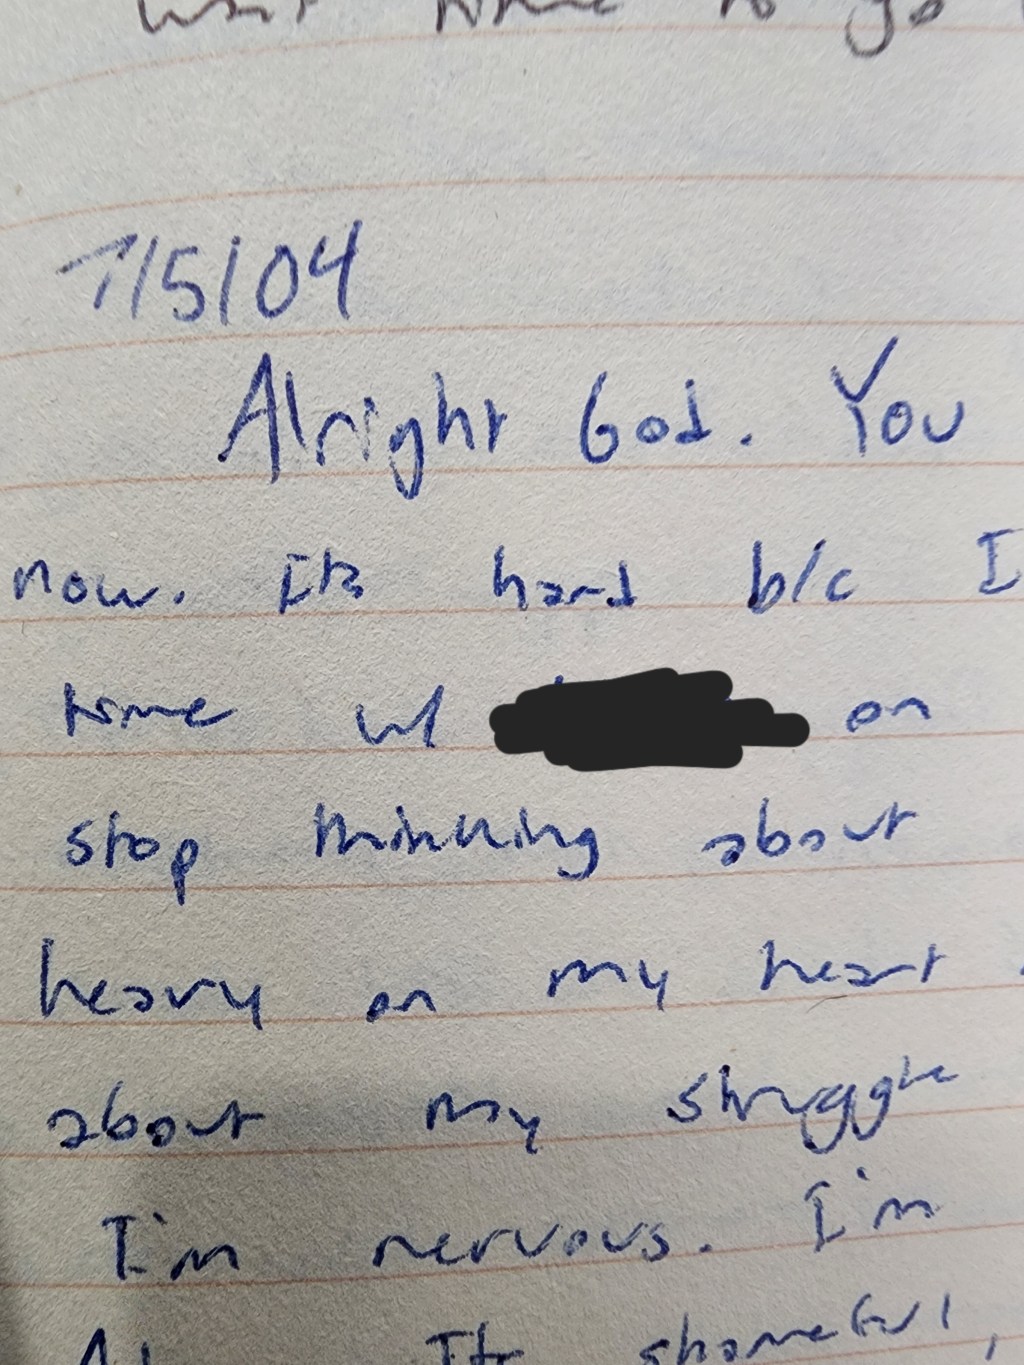 time to go
7/5/04
Alright God. You
now. Its hard b/c I
time w/ on
stop thinking about
heavy on my heart.
about my struggle
I'm nervous. I'm
Its shameful,